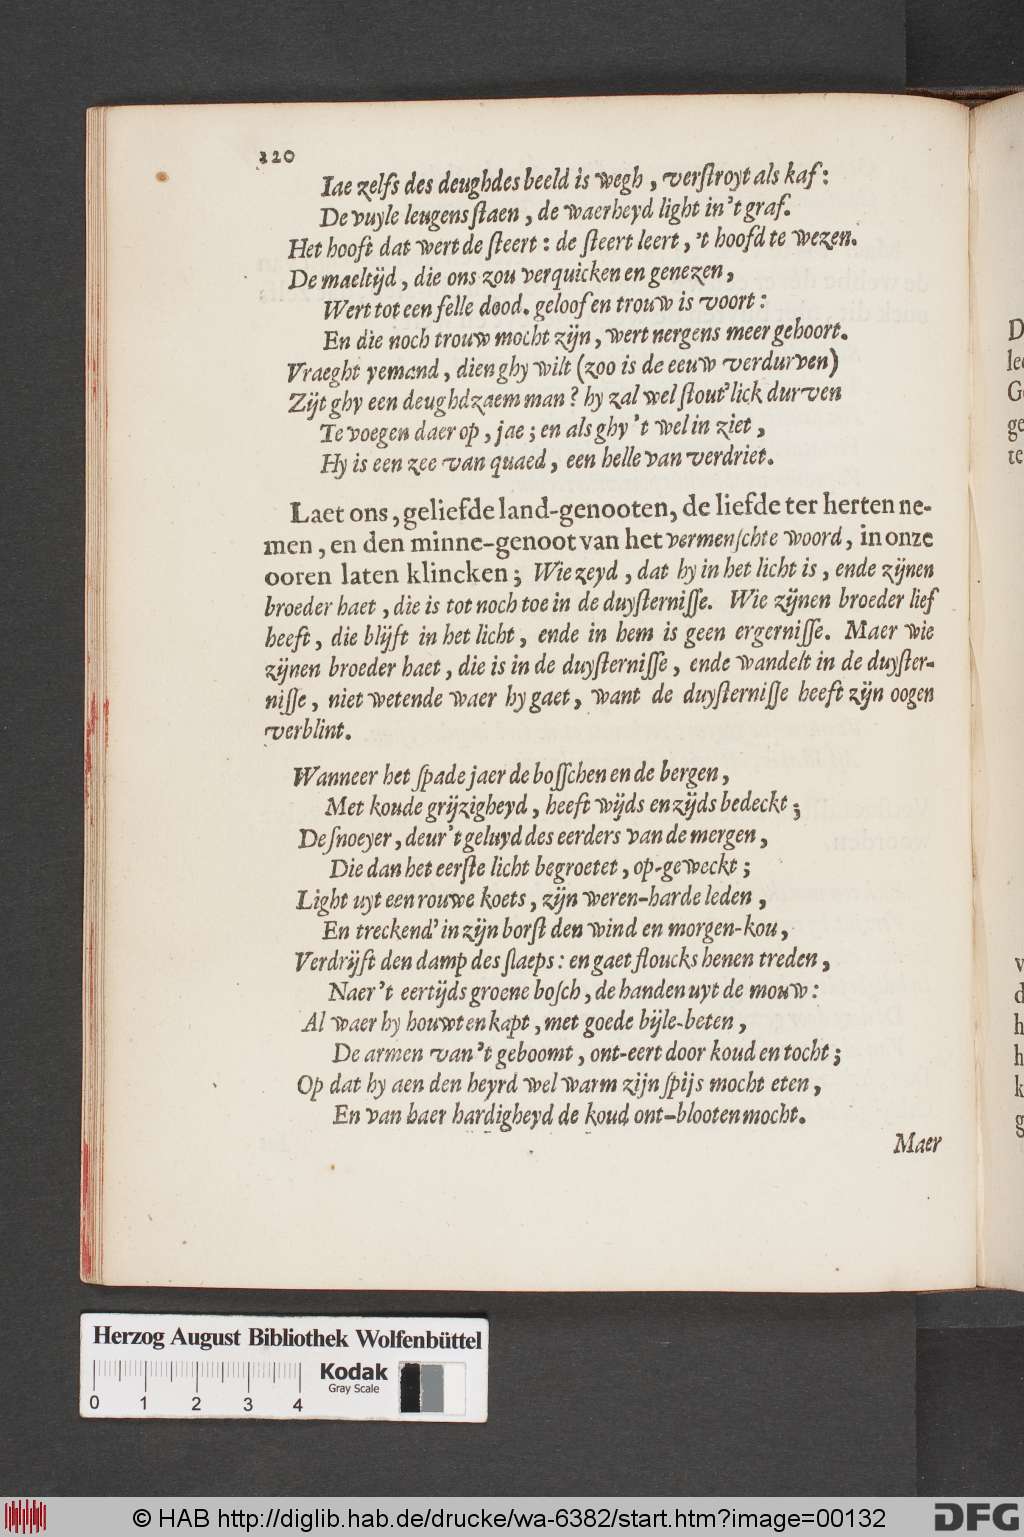 120
Iae zelfs des deughdes beeld is wegh, verstroyt als kaf:
De vuyle leugens staen, de waerheyd light in 't graf.
Het hooft dat wert de steert: de steert leert, 't hoofd te wezen.
De maeltijd, die ons zou verquicken en genezen,
Wert tot een felle dood. geloof en trouw is voort:
En die noch trouw mocht zijn, wert nergens meer gehoort.
Vraeght yemand, dien ghy wilt (zoo is de eeuw verdurven)
Zijt ghy een deughdzaem man? hy zal wel stout'lick durven
Te voegen daer op, jae; en als ghy 't wel in ziet,
Hy is een zee van quaed, een helle van verdriet.
Laet ons, geliefde land-genooten, de liefde ter herten ne-
men, en den minne-genoot van het vermenschte woord, in onze
ooren laten klincken; Wie zeyd, dat hy in het licht is, ende zijnen
broeder haet, die is tot noch toe in de duysternisse. Wie zijnen broeder lief
heeft, die blijft in het licht, ende in hem is geen ergernisse. Maer wie
zijnen broeder haet, die is in de duysternisse, ende wandelt in de duyster-
nisse, niet wetende waer hy gaet, want de duysternisse heeft zijn oogen
verblint.
Wanneer het spade jaer de bosschen en de bergen,
Met koude grijzigheyd, heeft wijds en zijds bedeckt;
De snoeyer, deur 't geluyd des eerders van de mergen,
Die dan het eerste licht begroetet, op-geweckt;
Light uyt een rouwe koets, zijn weren-harde leden,
En treckend' in zijn borst den wind en morgen-kou,
Verdrijft den damp des slaeps: en gaet floucks henen treden,
Naer 't eertijds groene bosch, de handen uyt de mouw:
Al waer hy houwt en kapt, met goede bijle-beten,
De armen van 't geboomt, ont-eert door koud en tocht;
Op dat hy aen den heyrd wel warm zijn spijs mocht eten,
En van haer hardigheyd de koud ont-blooten mocht.
Maer
Herzog August Bibliothek Wolfenbüttel
Kodak
Gray Scale
0 1 2 3 4
© HAB http://diglib.hab.de/drucke/wa-6382/start.htm?image=00132
DFG